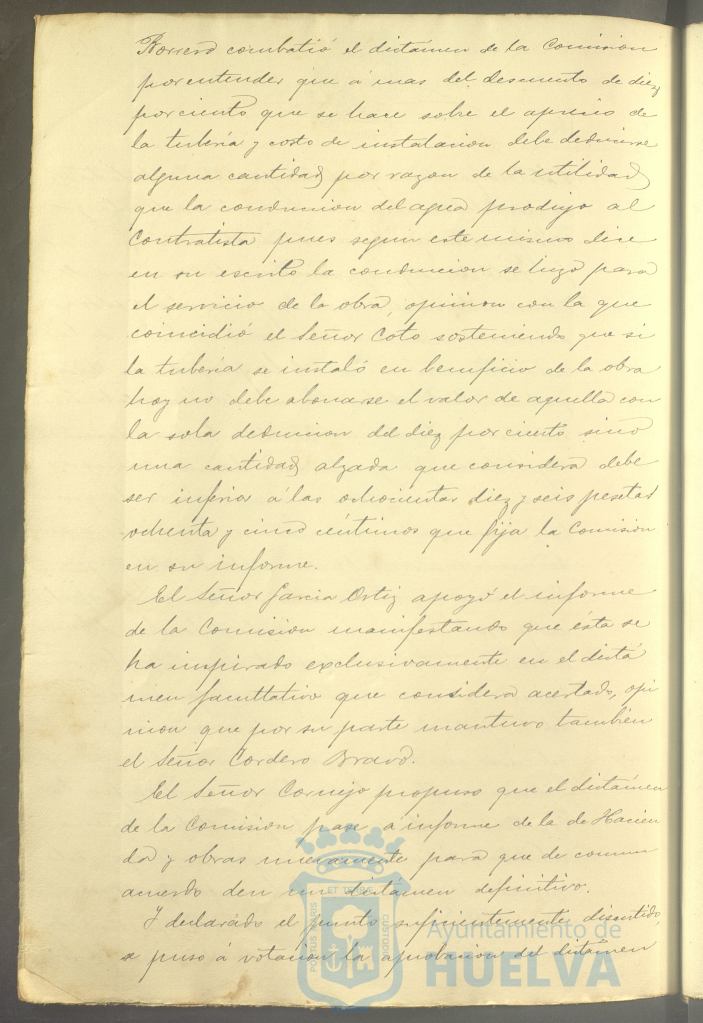 Borrero combatió el dictámen de la Comision
por entender que á mas del descuento de diez
por ciento que se hace sobre el aprecio de
la tubería y costo de instalacion debe deducirse
alguna cantidad por razon de la utilidad
que la conduccion del agua produjo al
Contratista pues segun este mismo dice
en su escrito la conduccion se hizo para
el servicio de la obra, opinion con la que
coincidió el Señor Coto sosteniendo que si
la tubería se instaló en beneficio de la obra
hoy no debe abonarse el valor de aquella con
la sola deduccion del diez por ciento sino
una cantidad alzada que considera debe
ser inferior á las ochocientas diez y seis pesetas
ochenta y cinco céntimos que fija la Comision
en su informe.
El Señor Garcia Ortiz apoyó el informe
de la Comision manifestando que ésta se
ha inspirado exclusivamente en el dictá
men facultativo que considera acertado, opi
nion que por su parte mantuvo tambien
el Señor Cordero Bravo.
El Señor Cornejo propuso que el dictámen
de la Comision pase a informe de la de Hacien
da y obras nuevamente para que de comun
acuerdo den un dictámen definitivo.
Y declarado el punto suficientemente discutido,
se puso á votacion la aprobacion del dictámen
PORTUS MARIS ET TERRAE CUSTODIA
Ayuntamiento de
HUELVA